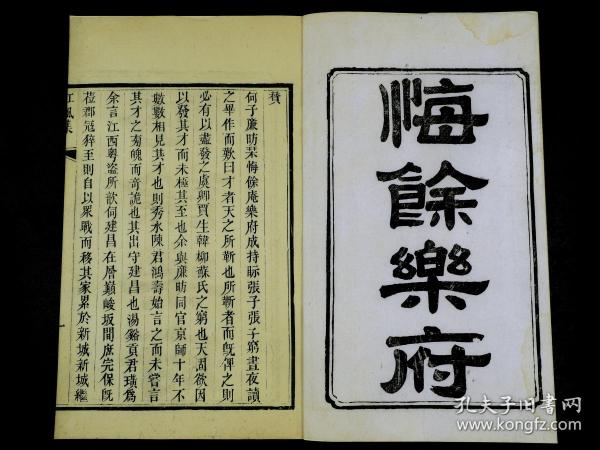 悔餘樂府
贊
何子廉昉栞悔餘庵樂府成持眎張子張子窮晝夜讀
之畢作而歎曰才者天之所靳也所靳者而旣俾之則
必有以盡發之虞卿賈生韓柳蘇氏之窮也天固欲因
以發其才而未極其至也余與廉昉同官京師十年不
數數相見其才也則秀水陳君鴻壽始言之而未嘗言
其才之奇詭也其出守建昌也湯谿貢君璜爲
余言江西粵盜所歆何建昌在層巔峻坂間庶完保旣
蒞郡寇猝至則自以眾戰而移其家累於新城新城繼
孔夫子旧書网
www.kongfz.com